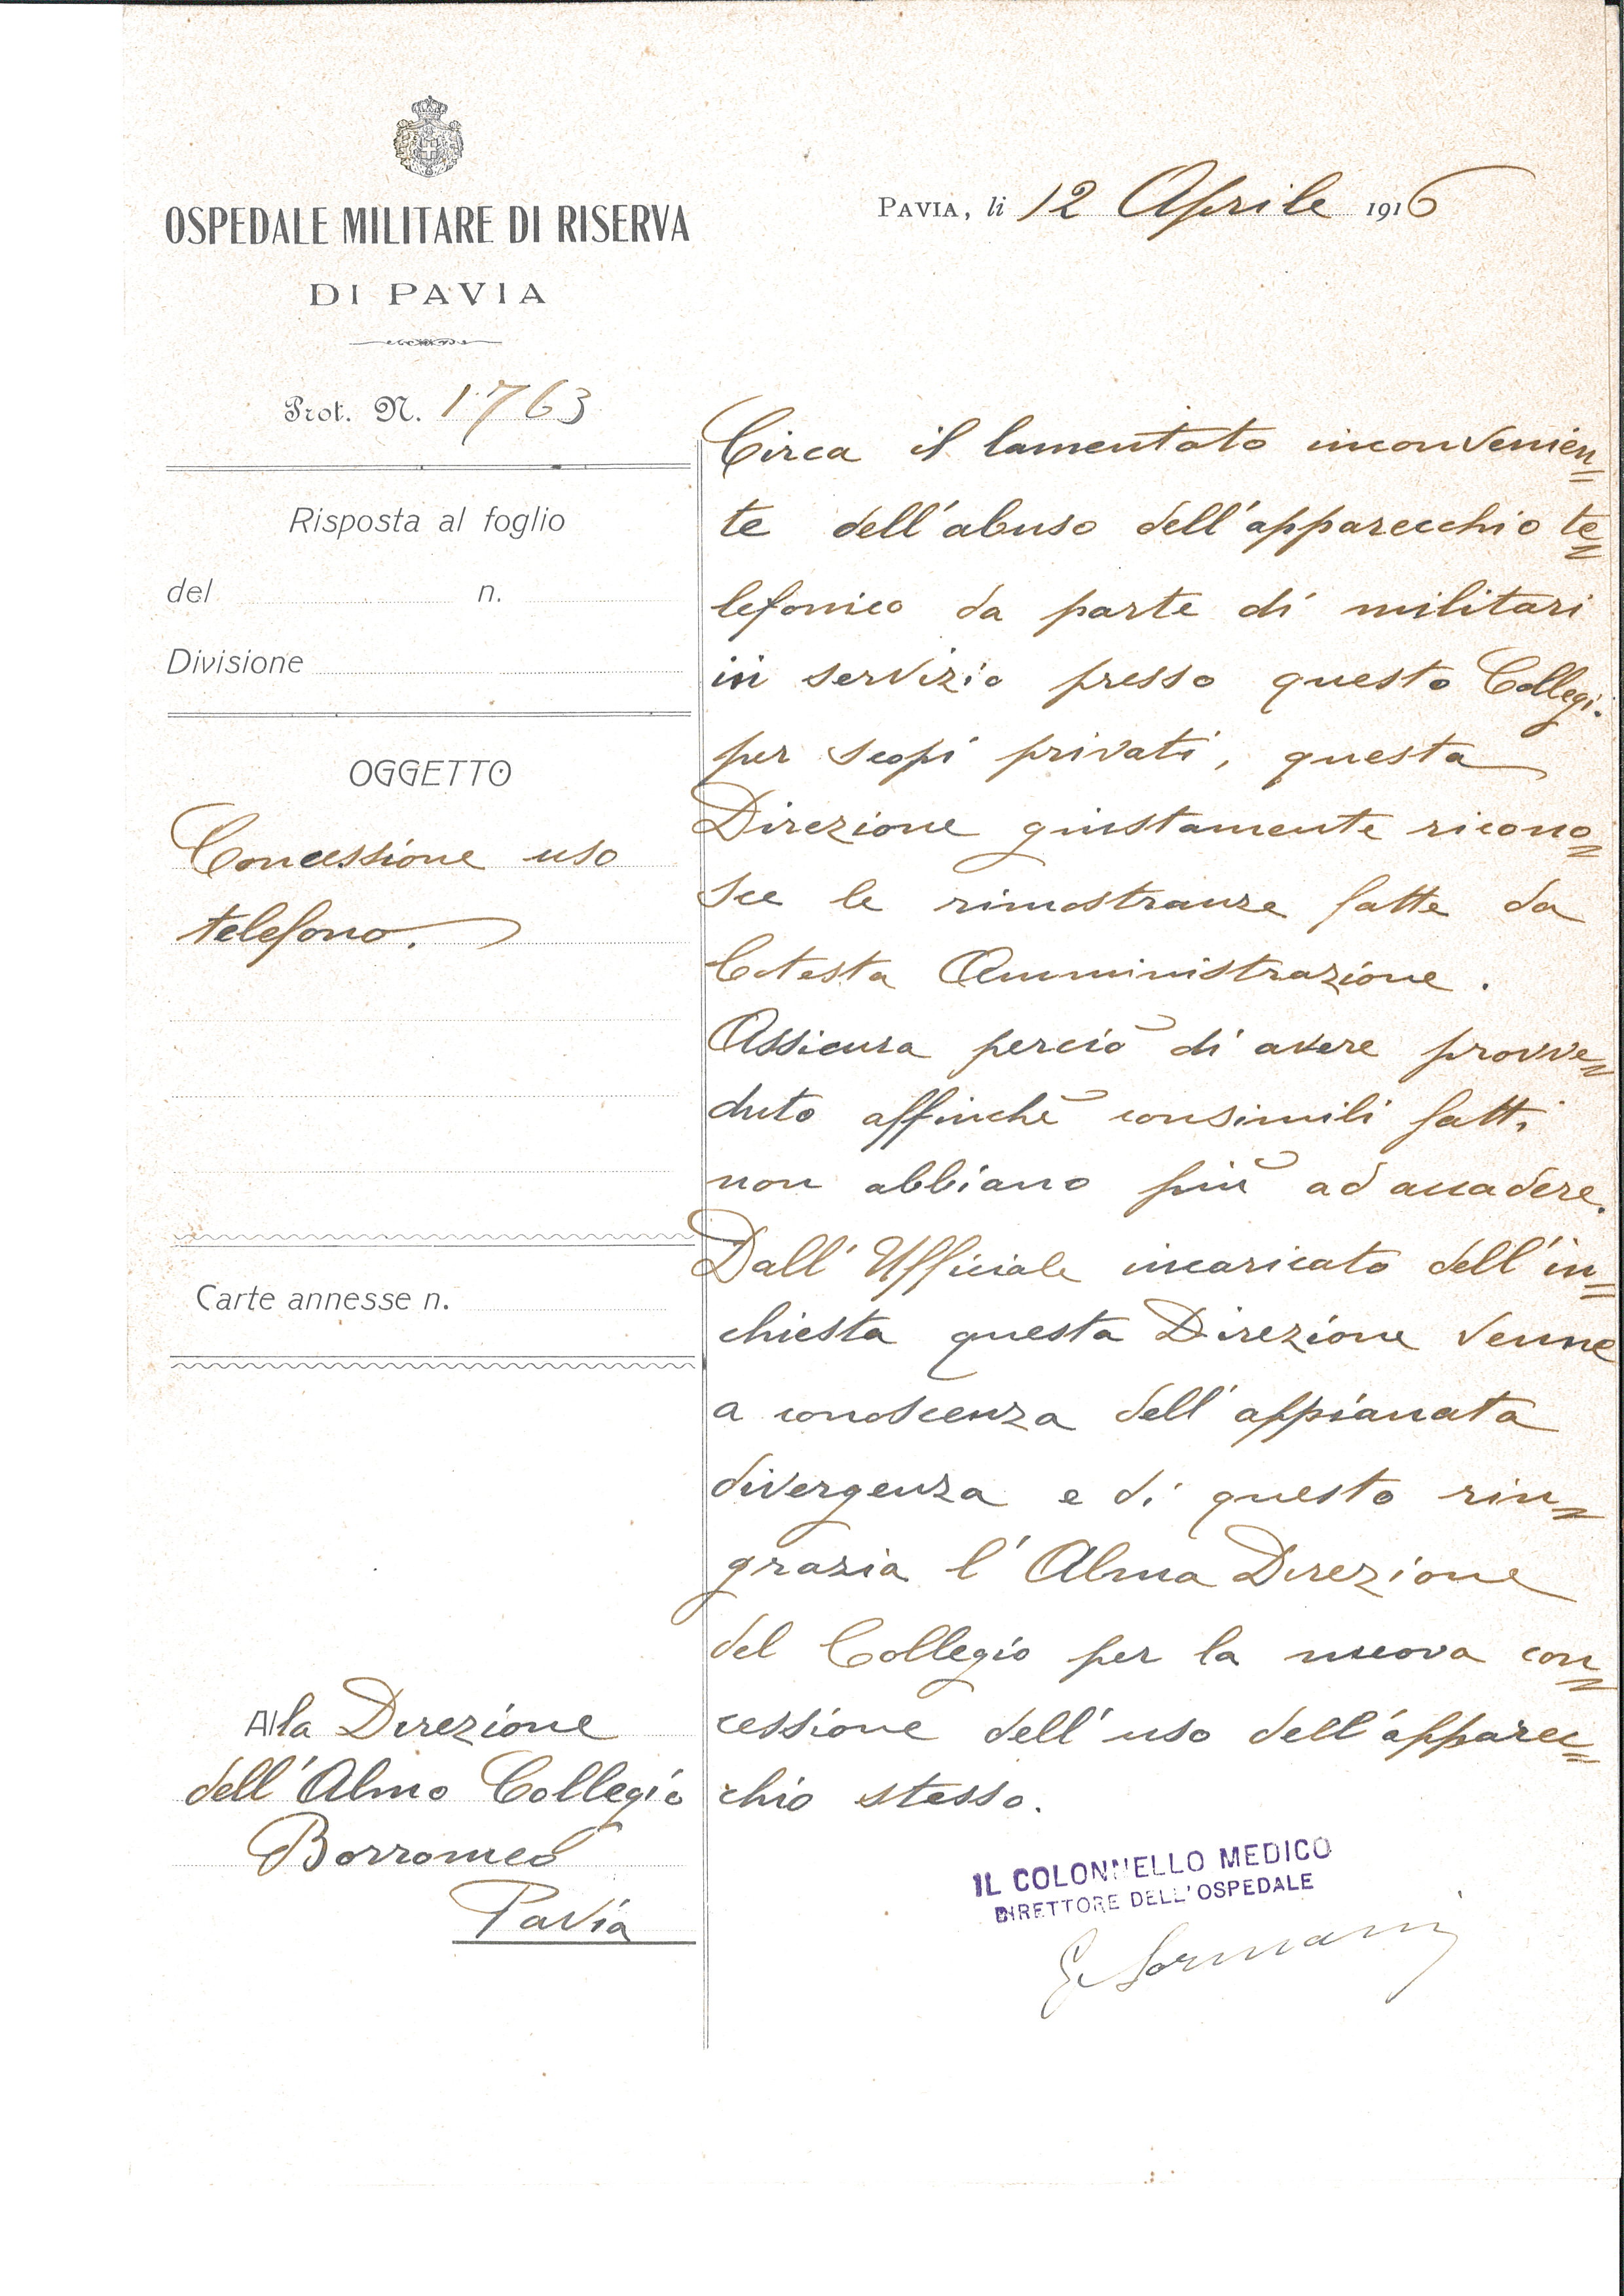 OSPEDALE MILITARE DI RISERVA
DI PAVIA
PAVIA, li 12 Aprile 1916
Prot. N. 1763
Risposta al foglio
del n.
Divisione
OGGETTO
Concessione uso
telefono.
Carte annesse n.
Alla Direzione
dell'Almo Collegio
Borromeo
Pavia
Circa il lamentato inconvenien=
te dell'abuso dell'apparecchio te=
lefonico da parte di militari
in servizio presso questo Collegi.
per scopi privati, questa
Direzione giustamente ricono=
sce le rimostranze fatte da
Cotesta Amministrazione.
Assicura perciò di avere provve=
duto affinchè consimili fatti
non abbiano più ad accadere.
Dall'Ufficiale incaricato dell'in=
chiesta questa Direzione venne
a conoscenza dell'appianata
divergenza e di questo rin=
grazia l'Alma Direzione
del Collegio per la nuova con=
cessione dell'uso dell'apparec=
chio stesso.
IL COLONNELLO MEDICO
DIRETTORE DELL'OSPEDALE
G. Sormani